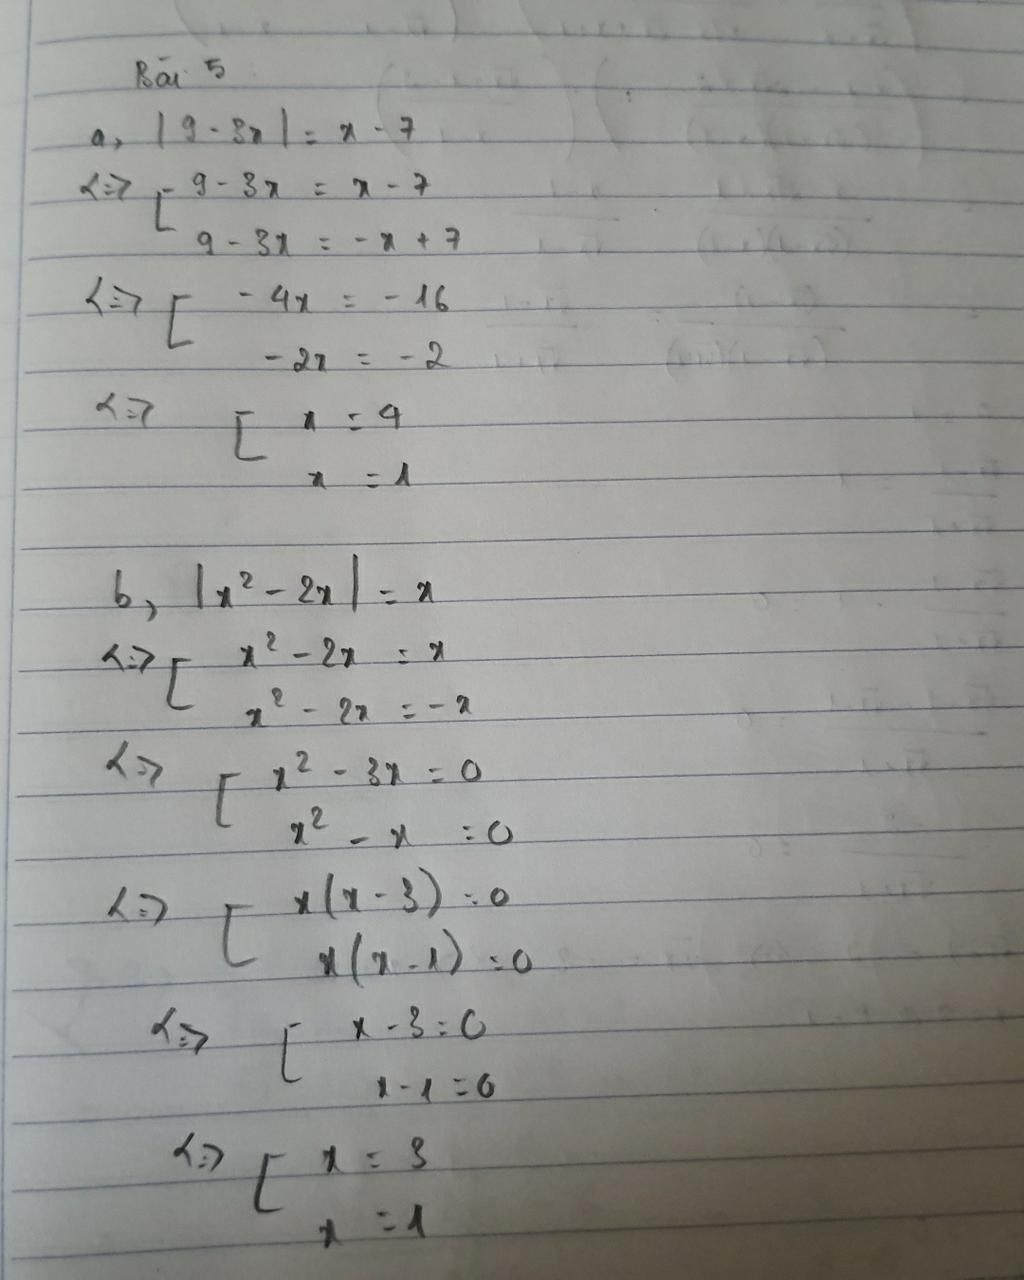 Bài 5
a, |9 - 3x| = x - 7
<=> [ 9 - 3x = x - 7
9 - 3x = - x + 7
<=> [ - 4x = - 16
- 2x = - 2
<=> [ x = 4
x = 1
b, |x² - 2x| = x
<=> [ x² - 2x = x
x² - 2x = - x
<=> [ x² - 3x = 0
x² - x = 0
<=> [ x(x - 3) = 0
x(x - 1) = 0
<=> [ x - 3 = 0
x - 1 = 0
<=> [ x = 3
x = 1